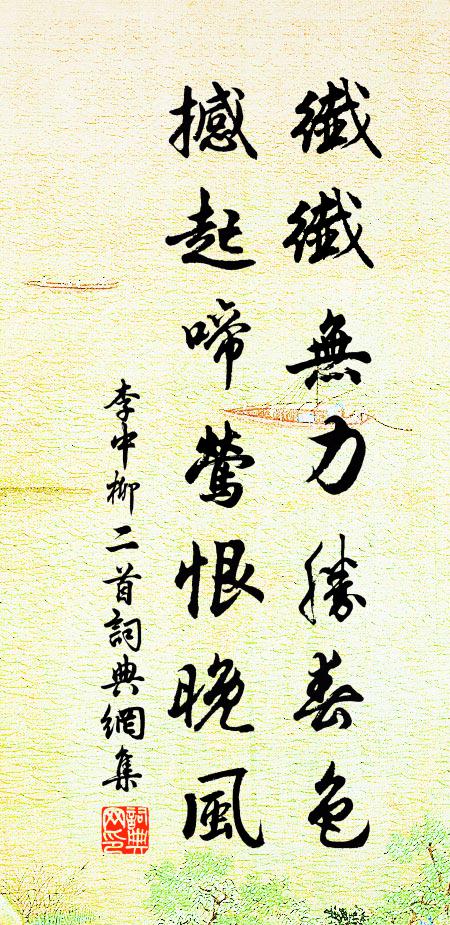 纖纖無力勝春色
撼起啼鶯恨晚風
李中柳二首詞典網集
詞典網印